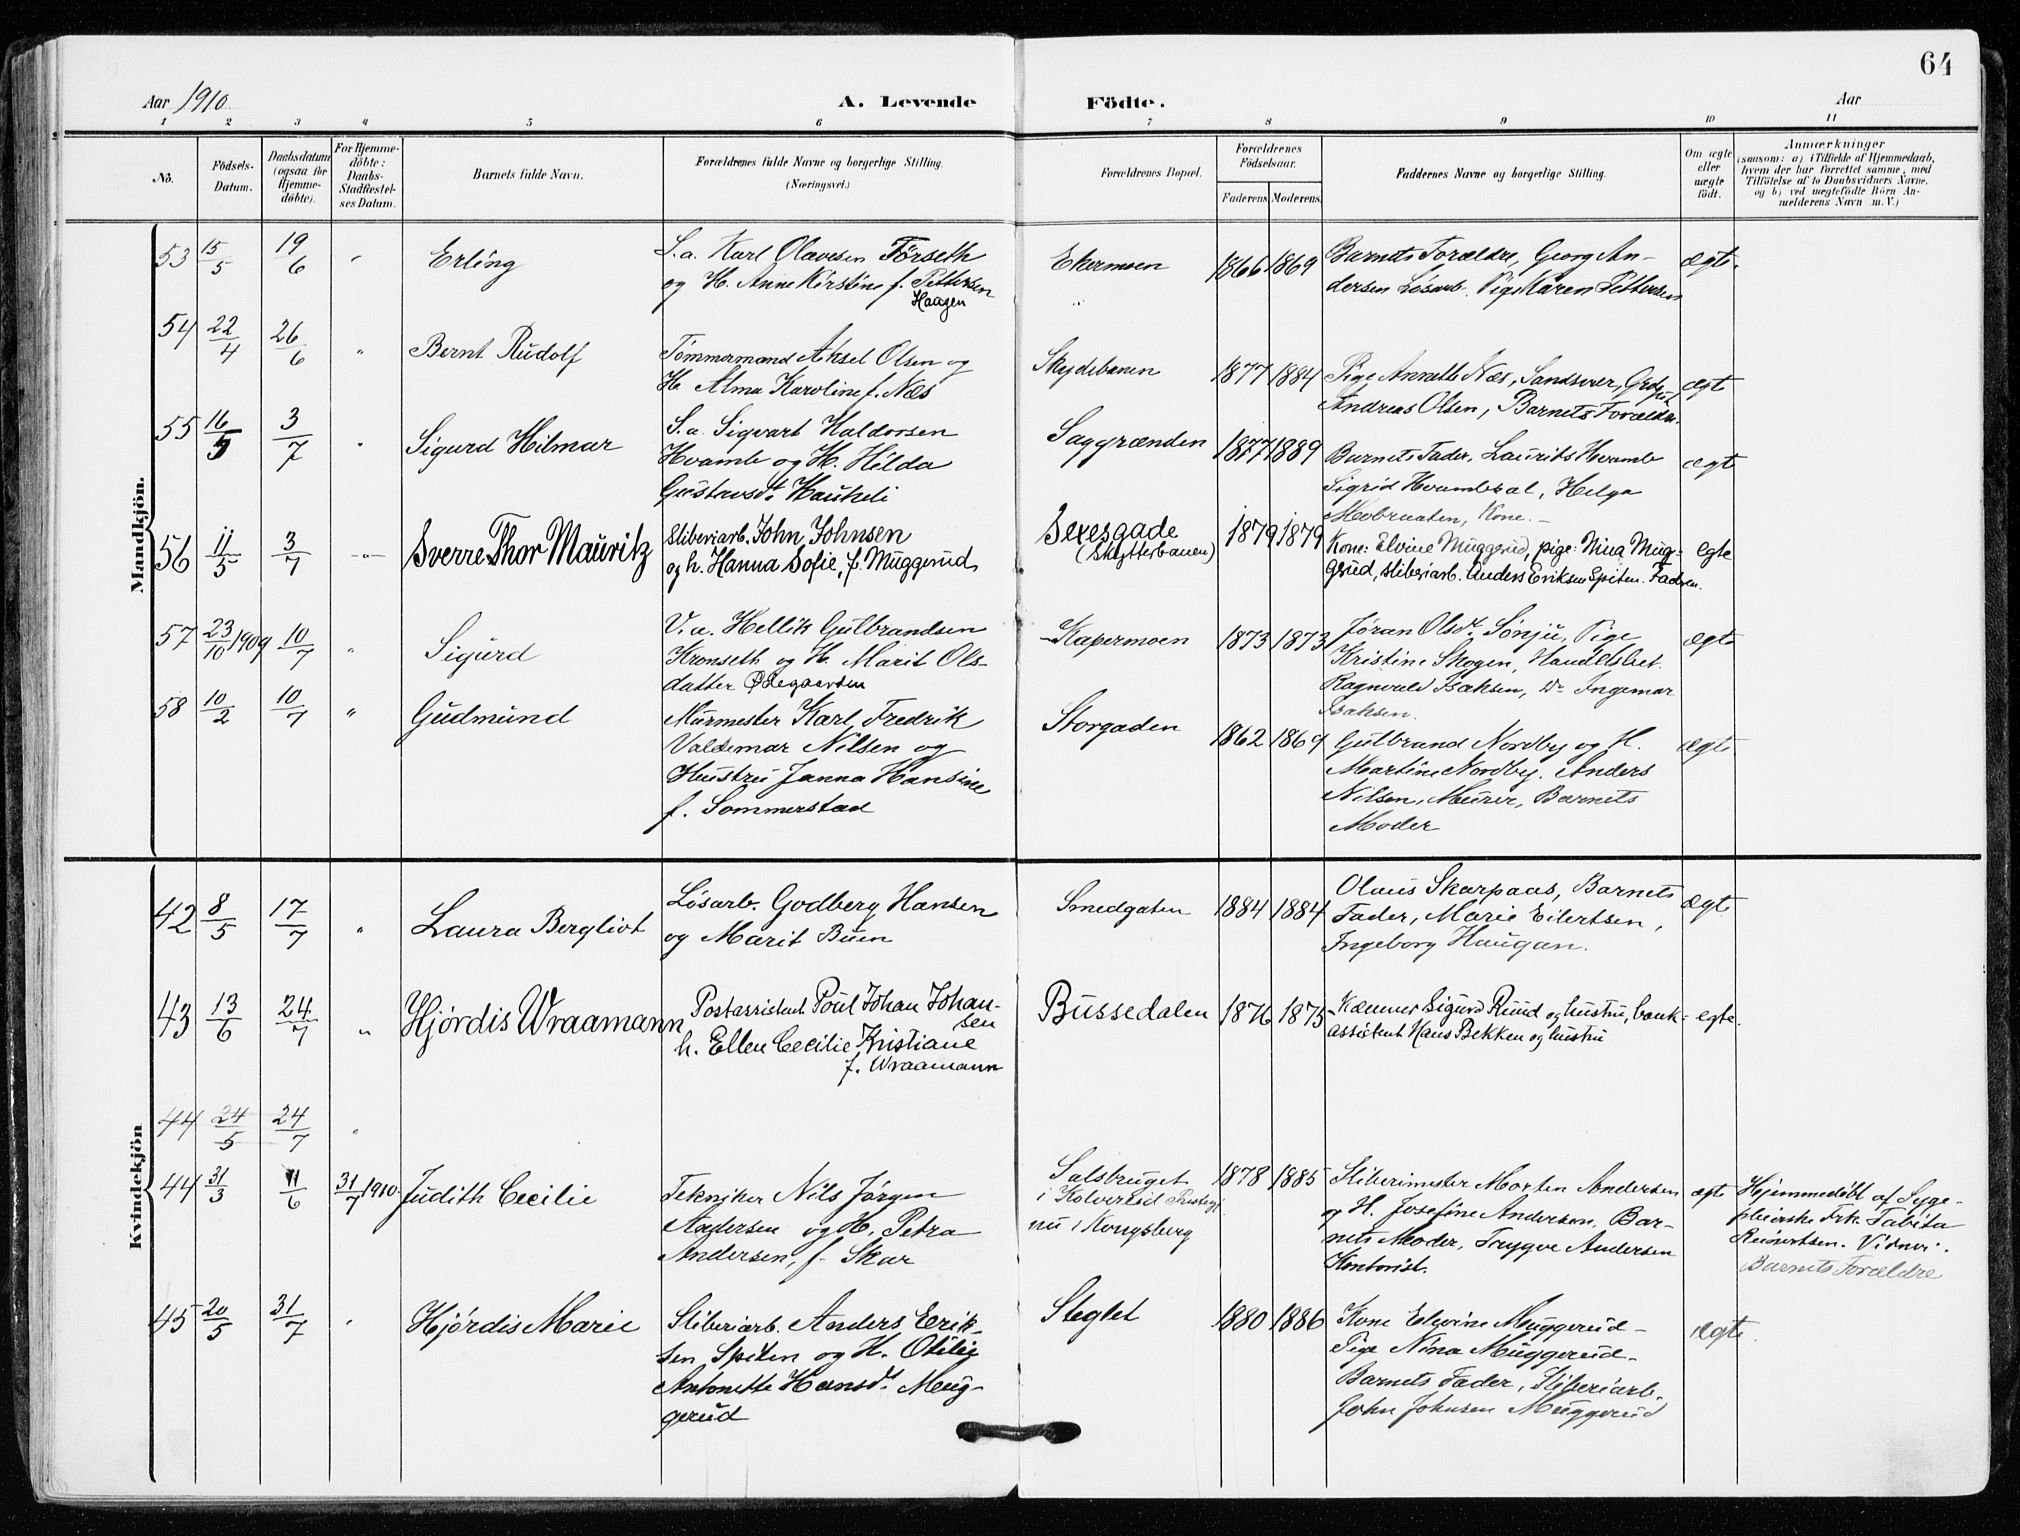 64
Aar 1910.
A. Levende Födte.
Aar
1 2 3 4 5 6 7 8 9 10 11
No.
Födsels-
Datum.
Daabsdatum
(ogsaa for
Hjemme-
döbte).
For Hjemme-
döbte:
Daabs-
Stadfæstel-
ses Datum.
Barnets fulde Navn.
Forældrenes fulde Navne og borgerlige Stilling.
(Næringsvei.)
Forældrenes Bopæl.
Forældrenes
Födselsaar.
Faderens. Moderens.
Faddernes Navne og borgerlige Stilling.
Om ægte
eller
uægte
födt.
Anmærkninger
(saasom: a) i Tilfælde af Hjemmedaab,
hvem der har forrettet samme, med
Tilföielse af to Daabsvidners Navne,
og b) ved uægtefödte Börn An-
melderens Navn m. V.)
Mandkjön.
53 15/5 19/6 " Erling
S.a. Karl Olavesen Førseth
og H. Anne Kirstine f. Pettersen
Haagen
Ekermoen 1866 1869
Barnets Forældre, Georg An-
dersen Løsarb. Pige Karen Pettersen
ægte.
54 22/4 26/6 " Bernt Rudolf
Tømmermand Aksel Olsen og
H. Alma Karoline f. Næs
Skydebanen 1877 1884
Pige Annette Næs, Sandsvær,
Andreas Olsen, Barnets Forældre.
ægte
55 16/5 3/7 " Sigurd Hilmar
S.a. Sigvart Haldorsen
Hvamb og H. Hilda
Gustavsdt. Haukeli
Saggrænden 1877 1889
Barnets Fader, Laurits Hvamb
Sigrid Hvambsal, Helga
Mobraaten, Kone.-
ægte
56 11/5 3/7 -"- Sverre Thor Mauritz
Sliberiarb. John Johnsen
og h. Hanna Sofie, f. Muggerud
Sexesgade
(Skytterbanen)
1879 1879
Kone: Elvine Muggerud, pige: Nina Mug-
gerud, sliberiarb. Anders Eriksen Spiten. Fadren.
egte
57 23/10 1909 10/7 " Sigurd
V.a. Hellik Gulbrandsen
Kronseth og H. Marit Ols-
datter Ødegaarden
Kapermoen 1873 1873
Jøran Olsdt. Sønju, Pige
Kristine Skogen, Handelsbet.
Ragnvald Isaksen, Do Ingemar
Isaksen.
ægte
58 10/2 10/7 " Gudmund
Murmester Karl Fredrik
Valdemar Nilsen og
Hustru Janna Hansine
f. Sommerstad
Storgaden 1862 1869
Gulbrand Nordby og H.
Martine Nordby. Anders
Nilsen, Murer, Barnets
Moder
ægte
Kvindekjön
42 8/5 17/7 " Laura Bergliot
Løsarb. Godberg Hansen
og Marit Buen
Smedgaten 1884 1884
Olaus Skarpaas, Barnets
Fader, Marie Eilertsen,
Ingeborg Haugan.
ægte
43 13/6 24/7 " Hjördis Wraamann
Postassistent Poul Johan Johan-
sen
h. Ellen Cecilie Kristiane
f. Wraamann
Bussedalen 1876 1875
Kæmner Sigurd Ruud og hustru, bank-
assistent Hans Bekken og hustru
egte.
44 24/5 24/7 "
44 31/3 11/6 31/7 1910. Judith Cecilie
Tekniker Nils Jørgen
Andersen og H. Petra
Andersen, f. Skar
Salsbruget
i Kolvereid Prestegj
nu i Kongsberg
1878 1885
Sliberimester Morten Andersen
og H. Josefine Andersen. Bar-
nets Moder, Trygve Andersen
Kontorist.
ægte
Hjemmedøbt af Syge-
pleierske Frk. Tabita
Reinertsen. Vidner:
Barnets Forældre
45 20/5 31/7 " Hjørdis Marie
Sliberiarb. Anders Erik-
sen Spiten og H. Otilie
Antonette Hansdt. Mug-
gerud
Steglet 1880 1886
Kone Elvine Muggerud-
Pige Nina Muggerud-
Barnets Fader, Sliberiarb.
John Johnsen Muggerud
ægte.